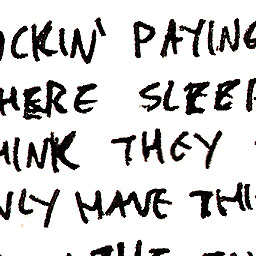 OCKIN' PAYING
HERE SLEEP
HINK THEY
NLY HAVE THI
THE